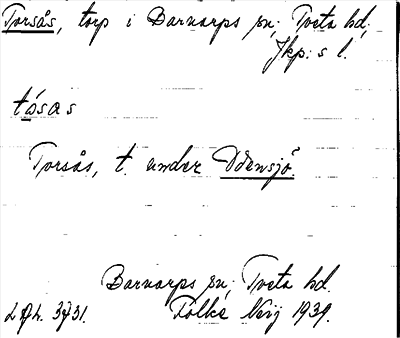 Torsås, torp i Barnarps sn; Tveta hd;
Jkp: s l.
tósas
Torsås, t. under Odensjö.
Barnarps sn; Tveta hd.
Folke Neij 1939.